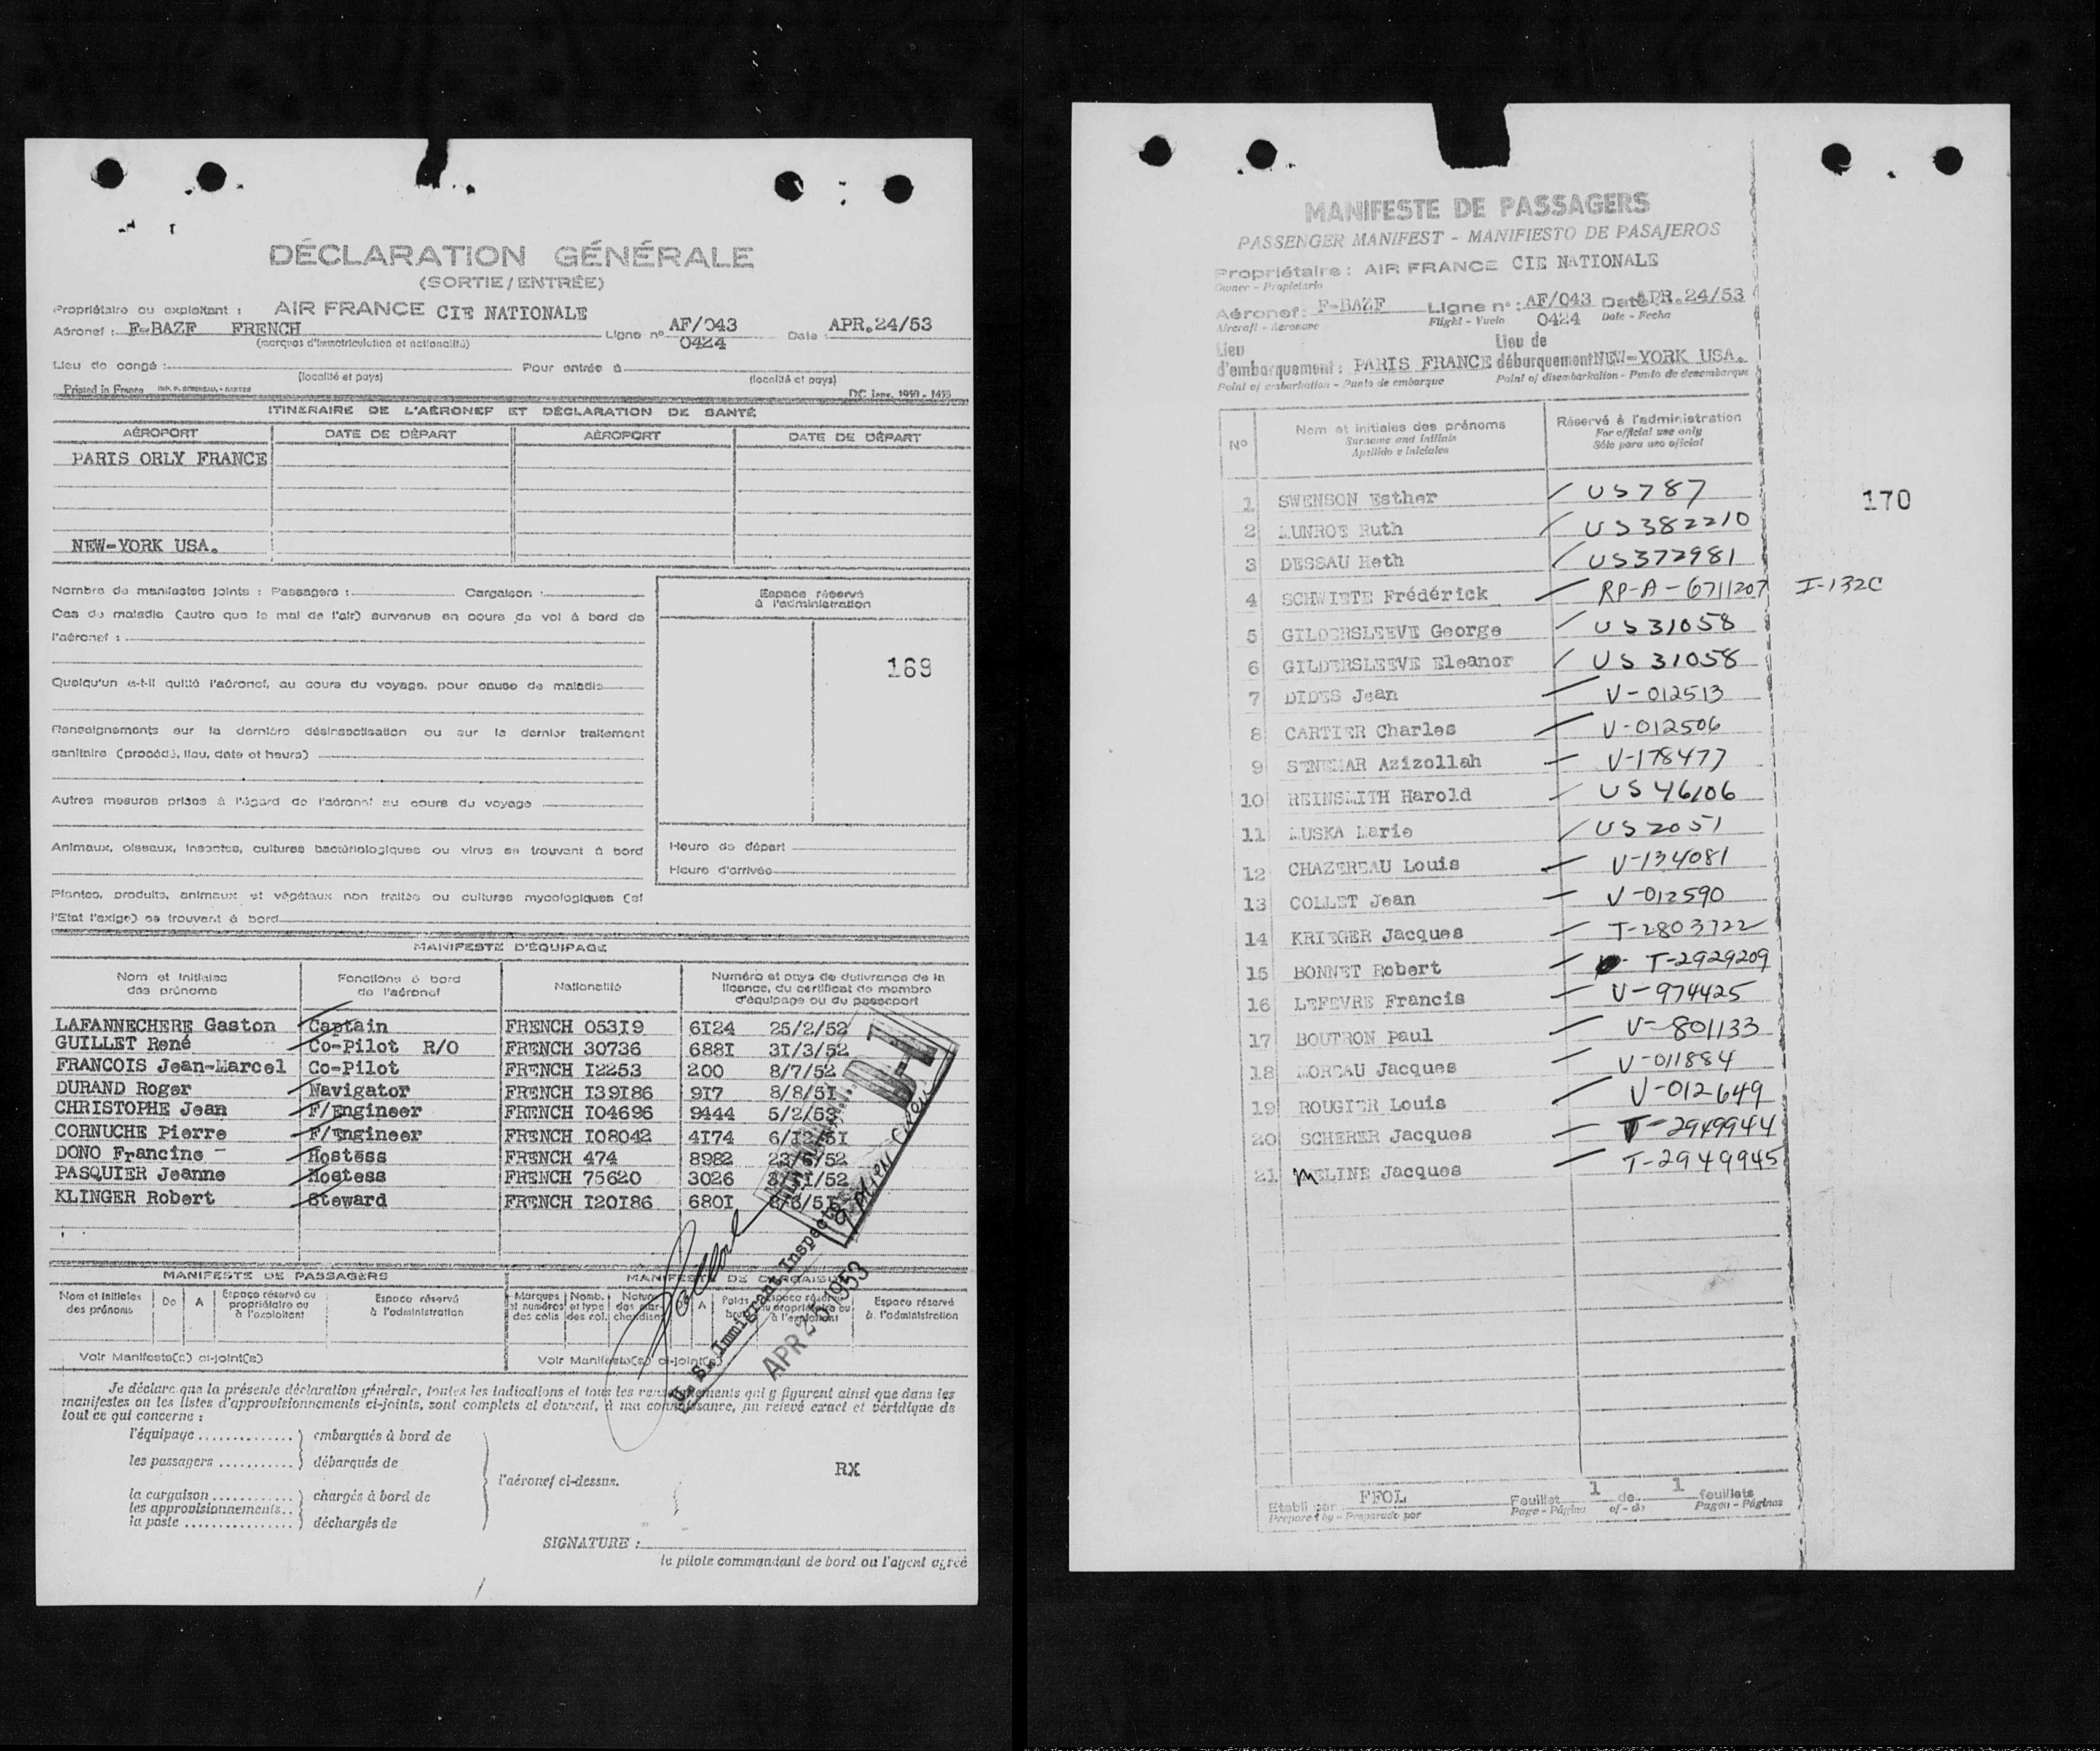 DÉCLARATION GÉNÉRALE
(SORTIE/ENTRÉE)
Propriétaire ou exploitant : AIR FRANCE CIE NATIONALE
Aéronef : F-BAZF FRENCH Ligne nº AF/043 Date APR.24/53
(marques d'immatriculation et nationalité) 0424
Lieu de congé : Pour entrée à
(localité et pays) (localité et pays)
Printed in France
ITINERAIRE DE L'AÉRONEF ET DÉCLARATION DE SANTÉ
AÉROPORT DATE DE DÉPART AÉROPORT DATE DE DÉPART
PARIS ORLY FRANCE
NEW-YORK USA.
Nombre de manifestes joints : Passagers : Cargaison :
Espace réservé
à l'administration
Cas de maladie (autre que le mal de l'air) survenus en cours de vol à bord de
l'aéronef :
169
Quelqu'un a-t-il quitté l'aéronef, au cours du voyage, pour cause de maladie
Renseignements sur la dernière désinsectisation ou sur le dernier traitement
sanitaire (procédé, lieu, date et heure)
Autres mesures prises à l'égard de l'aéronef au cours du voyage
Animaux, oiseaux, insectes, cultures bactériologiques ou virus se trouvant à bord
Heure de départ
Heure d'arrivée
Plantes, produits, animaux et végétaux non traités ou cultures mycologiques (si
l'Etat l'exige) se trouvant à bord
MANIFESTE D'ÉQUIPAGE
Nom et initiales
des prénoms
Fonctions à bord
de l'aéronef
Nationalité
Numéro et pays de délivrance de la
licence, du certificat de membre
d'équipage ou du passeport
LAFANNECHERE Gaston Captain FRENCH 05319 6124 25/2/52
GUILLET René Co-Pilot R/O FRENCH 30736 6881 31/3/52
FRANCOIS Jean-Marcel Co-Pilot FRENCH 12253 200 8/7/52
DURAND Roger Navigator FRENCH 139186 917 8/8/51
CHRISTOPHE Jean F/Engineer FRENCH 104696 9444 5/2/53
CORNUCHE Pierre F/Engineer FRENCH 108042 4174 6/12/51
DONO Francine Hostess FRENCH 474 8982
PASQUIER Jeanne Hostess FRENCH 75620 3026
KLINGER Robert Steward FRENCH 120186 6801
U. S. Immigrant Inspector
APR 25 1953
MANIFESTE DE PASSAGERS MANIFESTE DE CARGAISON
Nom et initiales
des prénoms
De A
Espace réservé au
propriétaire ou
à l'exploitant
Espace réservé
à l'administration
Marques
et numéros
des colis
Nomb.
et type
des col.
Nature
des mar-
chandises
A
Poids
brut
Espace réservé
au propriétaire ou
à l'exploitant
Espace réservé
à l'administration
Voir Manifeste(s) ci-joint(s) Voir Manifeste(s) ci-joint(s)
Je déclare que la présente déclaration générale, toutes les indications et tous les renseignements qui y figurent ainsi que dans les
manifestes ou les listes d'approvisionnements ci-joints, sont complets et donnent, à ma connaissance, un relevé exact et véridique de
tout ce qui concerne :
l'équipage .............. embarqués à bord de
les passagers ........... débarqués de
l'aéronef ci-dessus.
RX
la cargaison ............ chargés à bord de
les approvisionnements..
la poste ................ déchargés de
SIGNATURE :
le pilote commandant de bord ou l'agent agréé
MANIFESTE DE PASSAGERS
PASSENGER MANIFEST - MANIFIESTO DE PASAJEROS
Propriétaire : AIR FRANCE CIE NATIONALE
Owner - Propietario
Aéronef : F-BAZF Ligne nº : AF/043 Date APR.24/53
Aircraft - Aeronave Flight - Vuelo 0424 Date - Fecha
Lieu Lieu de
d'embarquement : PARIS FRANCE débarquement NEW-YORK USA.
Point of embarkation - Punto de embarque Point of disembarkation - Punto de desembarque
Nº
Nom et initiales des prénoms
Surname and initials
Apellido e iniciales
Réservé à l'administration
For official use only
Sólo para uso oficial
170
1 SWENSON Esther US787
2 MUNROE Ruth US382210
3 DESSAU Heth US372981
4 SCHWIETE Frédérick RP-A-6711207 I-132C
5 GILDERSLEEVE George US31058
6 GILDERSLEEVE Eleanor US 31058
7 DIDES Jean V-012513
8 CARTIER Charles V-012506
9 SENEMAR Azizollah V-178477
10 REINSMITH Harold US46106
11 MUSKA Marie US2051
12 CHAZEREAU Louis V-134081
13 COLLET Jean V-012590
14 KRIEGER Jacques T-2803722
15 BONNET Robert T-2929209
16 LEFEVRE Francis V-974425
17 BOUTRON Paul V-801133
18 MOREAU Jacques V-011884
19 ROUGIER Louis V-012649
20 SCHERER Jacques T-2949944
21 MELINE Jacques T-2949945
Etabli par FFOL Feuillet 1 de 1 feuillets
Prepared by - Preparado por Page - Página of - de Pages - Páginas